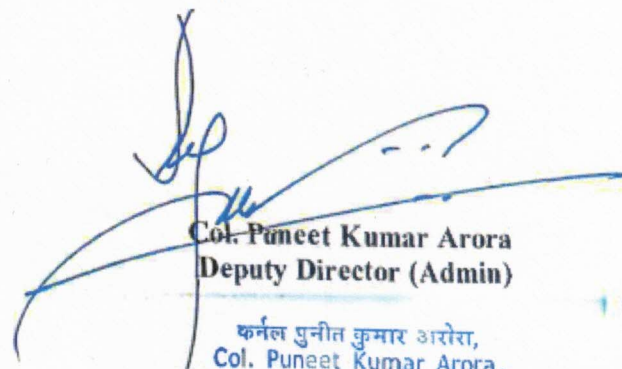 Col. Puneet Kumar Arora
Deputy Director (Admin)
कर्नल पुनीत कुमार अरोरा,
Col. Puneet Kumar Arora